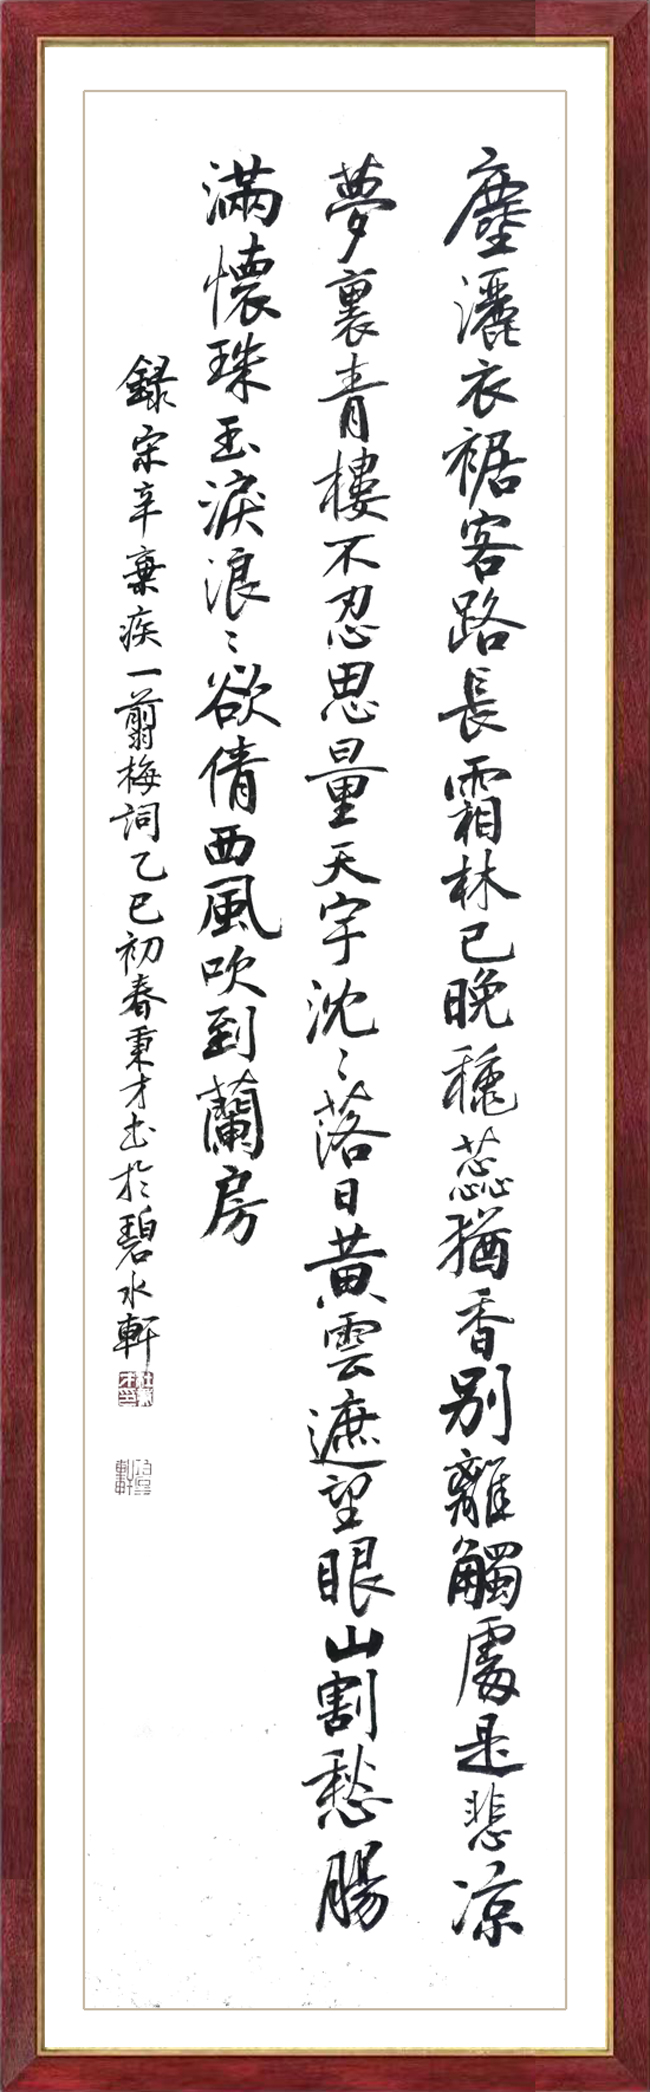 塵灑衣裾客路長霜林已晚穐蕊猶香別離觸處是悲涼
夢裏青樓不忍思量天宇沈〻落日黃雲遮望眼山割愁腸
滿懷珠玉淚浪〻欲倩西風吹到蘭房
錄宋辛棄疾一翦梅詞乙巳初春秉才書於碧水軒